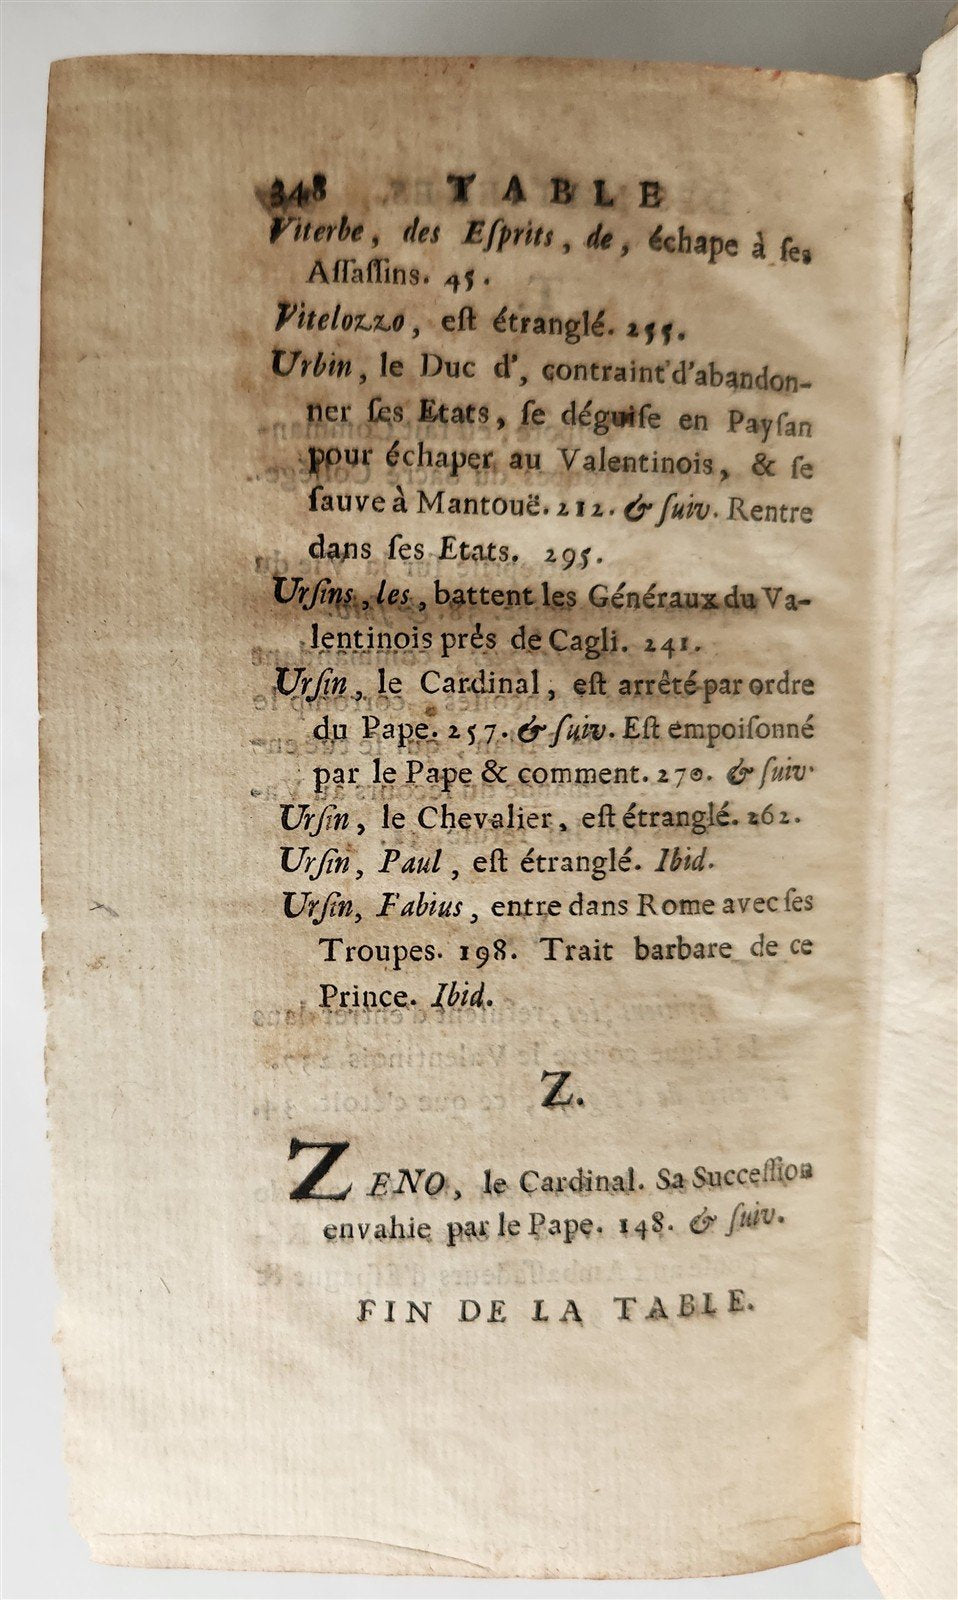 348 TABLE
Viterbe, des Eſprits, de, échape à ſes
Aſſaſſins. 45.
Vitelozzo, eſt étranglé. 255.
Urbin, le Duc d', contraint d'abandon-
ner ſes Etats, ſe déguiſe en Payſan
pour échaper au Valentinois, & ſe
ſauve à Mantouë. 212. & ſuiv. Rentre
dans ſes Etats. 295.
Urſins, les, battent les Généraux du Va-
lentinois près de Cagli. 241.
Urſin, le Cardinal, eſt arrêté par ordre
du Pape. 257. & ſuiv. Eſt empoiſonné
par le Pape & comment. 270. & ſuiv.
Urſin, le Chevalier, eſt étranglé. 262.
Urſin, Paul, eſt étranglé. Ibid.
Urſin, Fabius, entre dans Rome avec ſes
Troupes. 198. Trait barbare de ce
Prince. Ibid.
Z.
ZENO, le Cardinal. Sa Succeſſion
envahie par le Pape. 148. & ſuiv.
FIN DE LA TABLE.